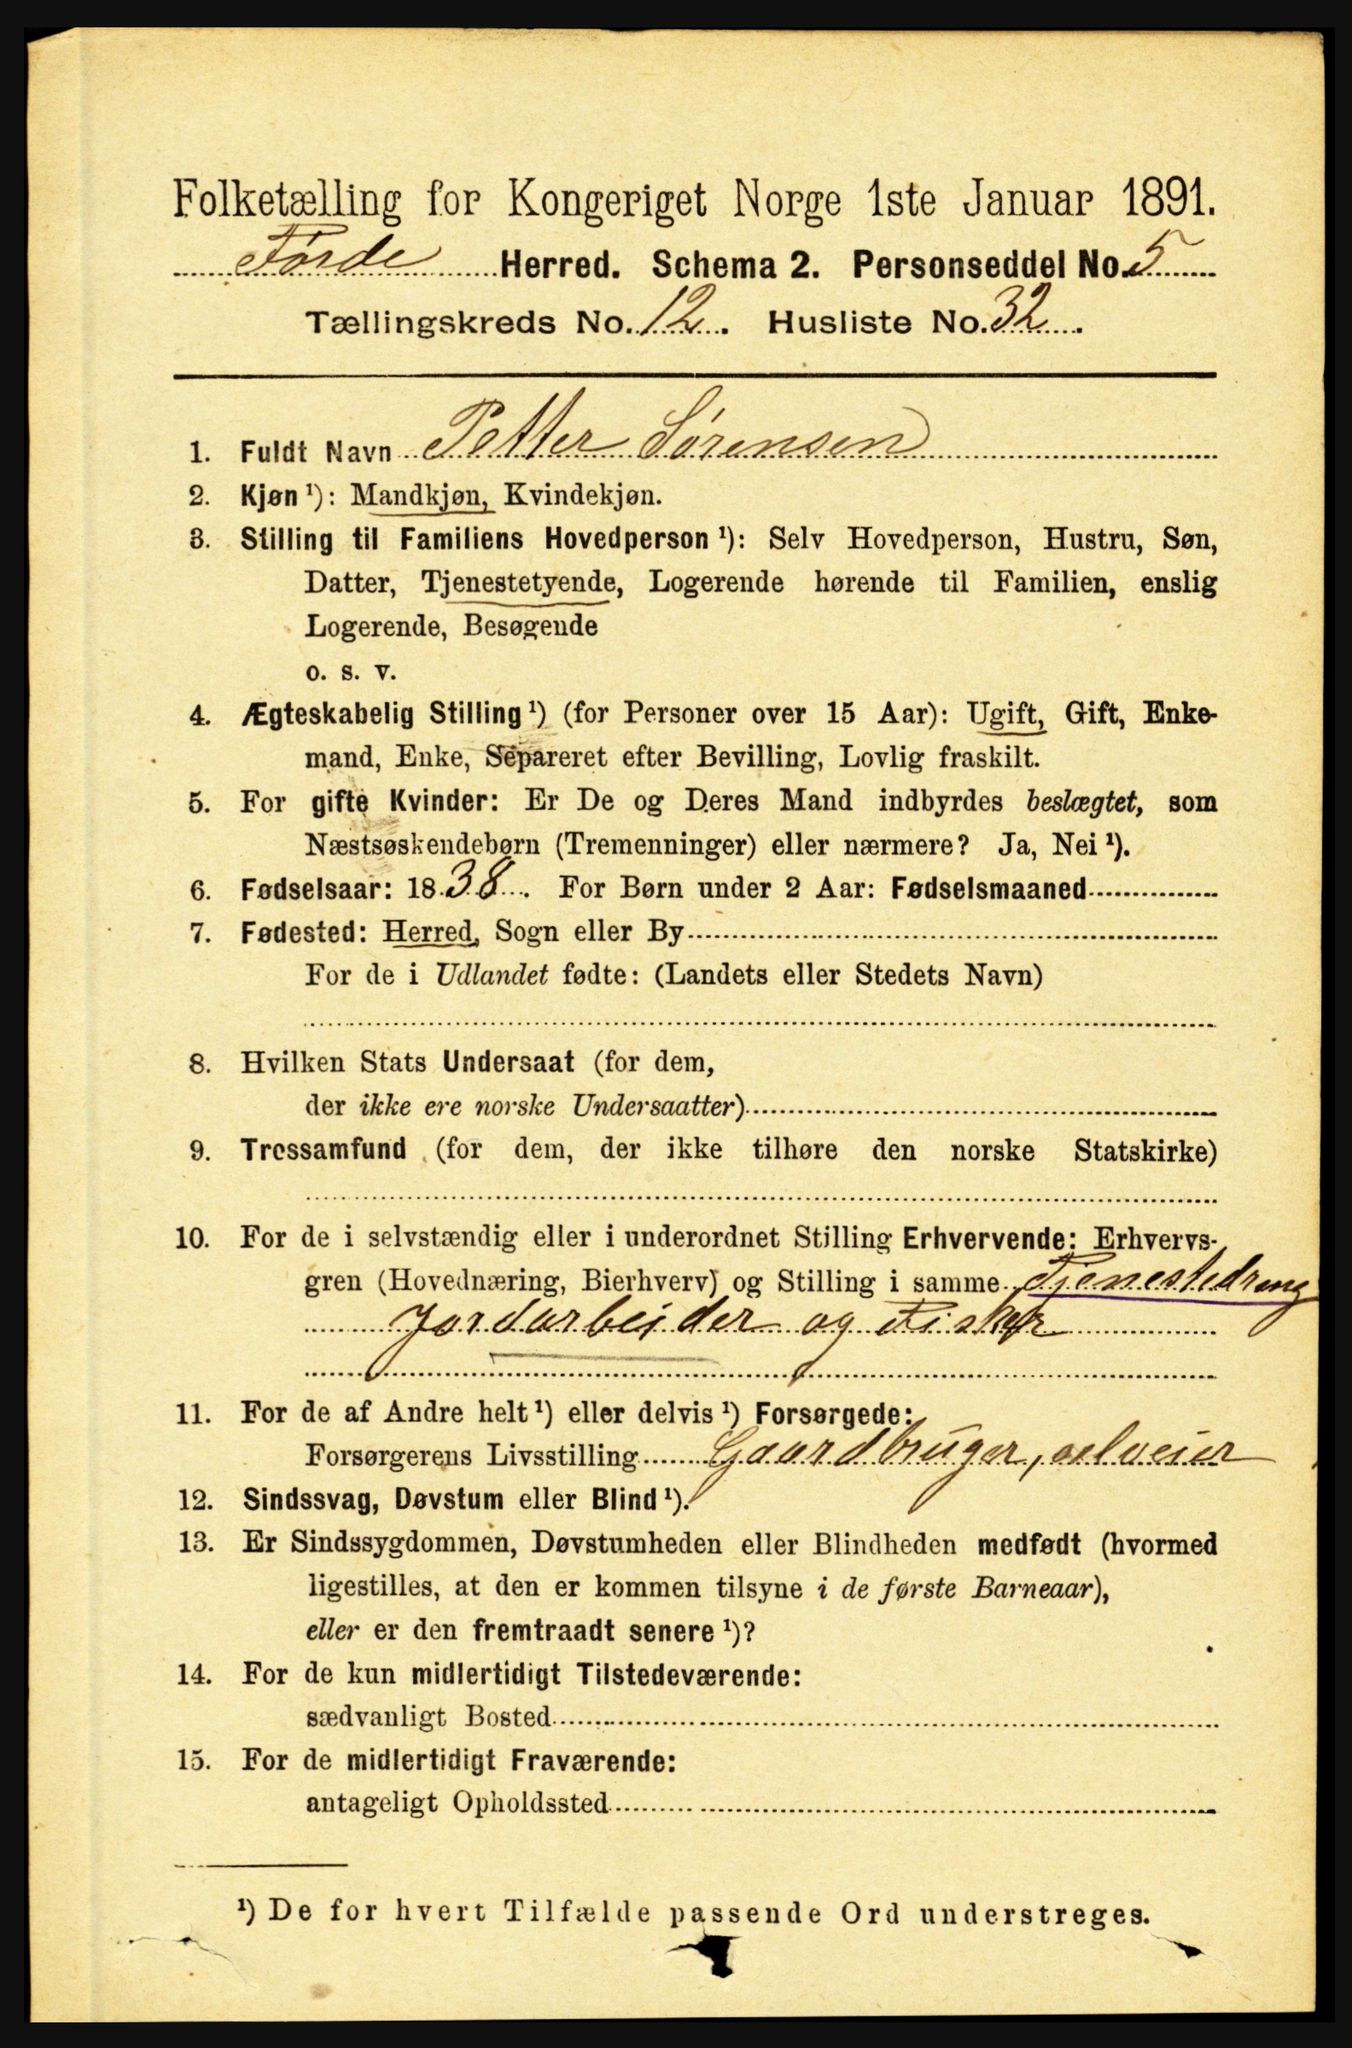 Folketælling for Kongeriget Norge 1ste Januar 1891.
Førde Herred. Schema 2. Personseddel No. 5
Tællingskreds No. 12. Husliste No. 32.
1. Fuldt Navn Petter Sørensen
2. Kjøn ¹): Mandkjøn, Kvindekjøn.
3. Stilling til Familiens Hovedperson ¹): Selv Hovedperson, Hustru, Søn,
Datter, Tjenestetyende, Logerende hørende til Familien, enslig
Logerende, Besøgende
o. s. v.
4. Ægteskabelig Stilling ¹) (for Personer over 15 Aar): Ugift, Gift, Enke-
mand, Enke, Separeret efter Bevilling, Lovlig fraskilt.
5. For gifte Kvinder: Er De og Deres Mand indbyrdes beslægtet, som
Næstsøskendebørn (Tremenninger) eller nærmere? Ja, Nei ¹).
6. Fødselsaar: 1838. For Børn under 2 Aar: Fødselsmaaned
7. Fødested: Herred, Sogn eller By
For de i Udlandet fødte: (Landets eller Stedets Navn)
8. Hvilken Stats Undersaat (for dem,
der ikke ere norske Undersaatter)
9. Trossamfund (for dem, der ikke tilhøre den norske Statskirke)
10. For de i selvstændig eller i underordnet Stilling Erhvervende: Erhvervs-
gren (Hovednæring, Bierhverv) og Stilling i samme Tjenestedreng
Jordarbeider og Fisker
11. For de af Andre helt ¹) eller delvis ¹) Forsørgede:
Forsørgerens Livsstilling Gaardbruger, selveier
12. Sindssvag, Døvstum eller Blind ¹).
13. Er Sindssygdommen, Døvstumheden eller Blindheden medfødt (hvormed
ligestilles, at den er kommen tilsyne i de første Barneaar),
eller er den fremtraadt senere ¹)?
14. For de kun midlertidigt Tilstedeværende:
sædvanligt Bosted
15. For de midlertidigt Fraværende:
antageligt Opholdssted
¹) De for hvert Tilfælde passende Ord understreges.